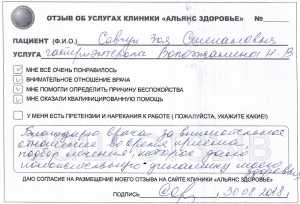 ОТЗЫВ ОБ УСЛУГАХ КЛИНИКИ «АЛЬЯНС ЗДОРОВЬЕ» №
ПАЦИЕНТ (Ф.И.О.) Савчук Зоя Степановна
УСЛУГА гастроэнтеролог Н. В
МНЕ ВСЁ ОЧЕНЬ ПОНРАВИЛОСЬ
ВНИМАТЕЛЬНОЕ ОТНОШЕНИЕ ВРАЧА
МНЕ ПОМОГЛИ ОПРЕДЕЛИТЬ ПРИЧИНУ БЕСПОКОЙСТВА
МНЕ ОКАЗАЛИ КВАЛИФИЦИРОВАННУЮ ПОМОЩЬ
У МЕНЯ ЕСТЬ ПРЕТЕНЗИИ И НАРЕКАНИЯ К РАБОТЕ ( ПОЖАЛУЙСТА, УКАЖИТЕ КАКИЕ!)
Благодарю врача за внимательное
отношение во время приема,
подбор лечения, которое дало
положительную динамику моего здоровья
ДАЮ СОГЛАСИЕ НА РАЗМЕЩЕНИЕ МОЕГО ОТЗЫВА НА САЙТЕ КЛИНИКИ «АЛЬЯНС ЗДОРОВЬЕ»
ПОДПИСЬ 30.08.2018г.